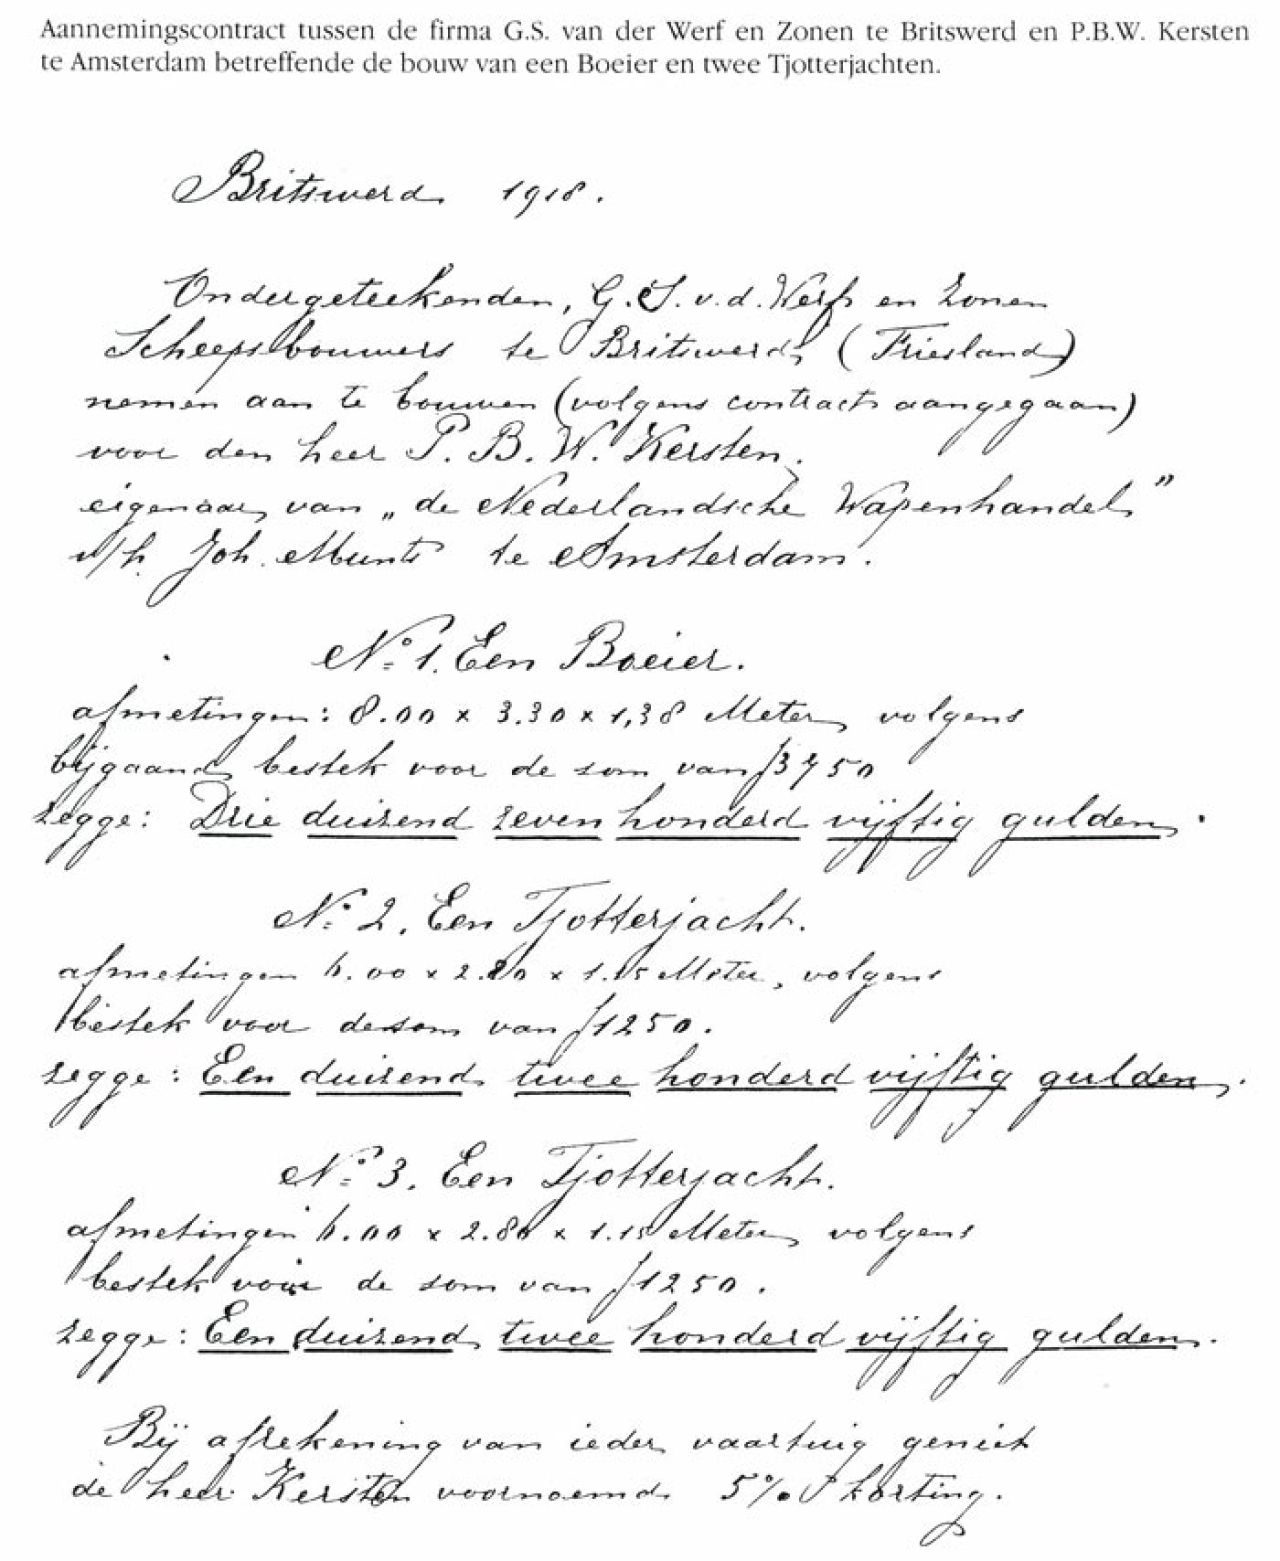 Aannemingscontract tussen de firma G.S. van der Werf en Zonen te Britswerd en P.B.W. Kersten
te Amsterdam betreffende de bouw van een Boeier en twee Tjotterjachten.
Britswerd 1918.
Ondergeteekenden, G.S. v.d. Werf en Zonen
Scheepsbouwers te Britswerd (Friesland)
nemen aan te bouwen (volgens contract aangegaan)
voor den heer P. B. W. Kersten.
eigenaar van „de Nederlandsche Wapenhandel"
v/h. Joh. Munts te Amsterdam.
No. 1. Een Boeier.
afmetingen: 8.00 x 3.30 x 1,38 Meter, volgens
bijgaand bestek voor de som van f 3750
zegge: Drie duizend zeven honderd vijftig gulden.
No. 2. Een Tjotterjacht.
afmetingen 6.00 x 2.80 x 1.15 Meter, volgens
bestek voor de som van f 1250.
zegge: Een duizend twee honderd vijftig gulden.
No. 3. Een Tjotterjacht.
afmetingen 6.00 x 2.80 x 1.15 Meter, volgens
bestek voor de som van f 1250.
zegge: Een duizend twee honderd vijftig gulden.
Bij afrekening van ieder vaartuig geniet
de heer Kersten voornoemd 5% korting.